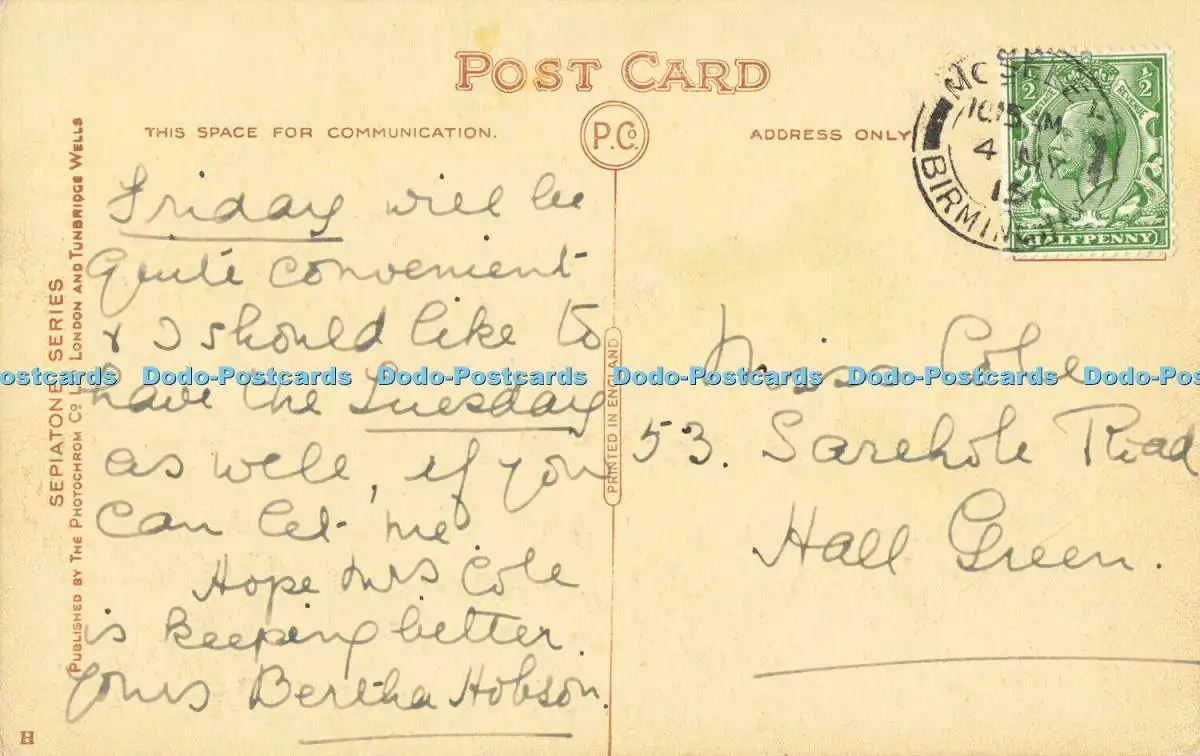 POST CARD
THIS SPACE FOR COMMUNICATION.
P.Co.
ADDRESS ONLY
MOSELEY
10 15 M
4 MA
15
BIRMINGHAM
½ ½
POSTAGE REVENUE
HALFPENNY
SEPIATONE SERIES
PUBLISHED BY THE PHOTOCHROM CO LTD LONDON AND TUNBRIDGE WELLS
PRINTED IN ENGLAND
Friday will be
quite convenient
& I should like to
have the Tuesday
as well, if you
can let me.
Hope Mrs Cole
is keeping better.
Yours Bertha Hobson.
Miss Cole
53. Sarehole Road
Hall Green.
ostcards Dodo-Postcards Dodo-Postcards Dodo-Postcards Dodo-Postcards Dodo-Po
H